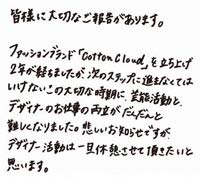 皆様に大切なご報告があります。
ファッションブランド「Cotton Cloud」を立ち上げ
2年が経ちましたが、次のステップに進まなくては
いけないこの大切な時期に、芸能活動と、
デザイナーのお仕事の両立がだんだんと
難しくなりました。悲しいお知らせですが、
デザイナー活動は一旦休憩させて頂きたいと
思います。